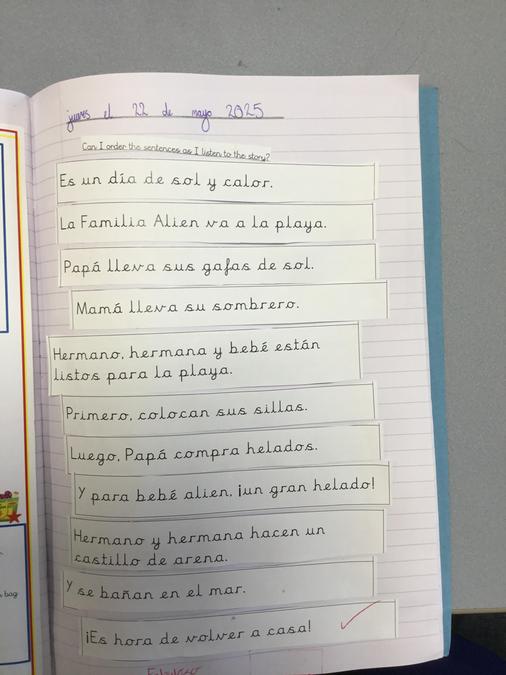 jueves el 22 de mayo 2025
Can I order the sentences as I listen to the story?
Es un día de sol y calor.
La Familia Alien va a la playa.
Papá lleva sus gafas de sol.
Mamá lleva su sombrero.
Hermano, hermana y bebé están
listos para la playa.
Primero, colocan sus sillas.
Luego, Papá compra helados.
Y para bebé alien, ¡un gran helado!
Hermano y hermana hacen un
castillo de arena.
Y se bañan en el mar.
¡Es hora de volver a casa!
bag